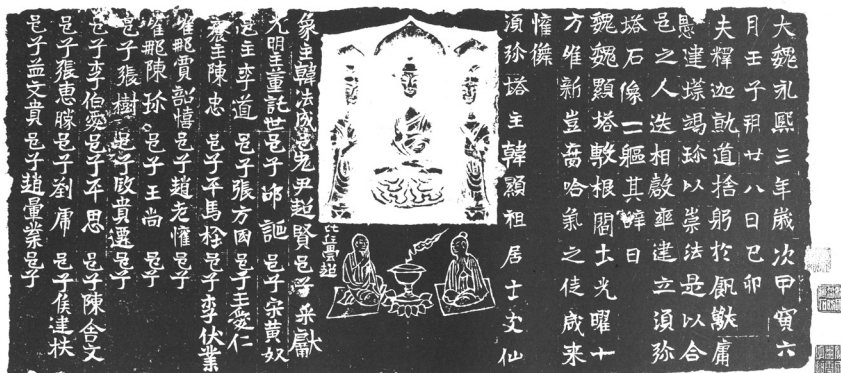 大魏永熙三年歲次甲寅六
月壬子朔廿八日己卯
夫釋迦訓道捨躬於飢獸庸
愚建㙮竭珎以崇法是以合
邑之人迭相率建立湏弥
塔石像二軀其辞曰
魏魏顯塔敷根閻土光曜十
方唯新豈啻哈氣之徒咸来
懽儛
湏弥塔主韓顯祖居士文仙
比丘曇超
象主韓法成邑老尹超賢邑子来獻
光明主董託世邑子邱邑子宋黄奴
邑主李道 邑子張方囯邑子王愛仁
齋主陳忠 邑子平馬栓邑子李伏業
唯那賈韶憘邑子趙老懽邑子
唯那陳珎 邑子王尚 邑子
邑子張樹 邑子貴遷邑子
邑子李伯愛邑子平思 邑子陳舍文
邑子張惠勝邑子刘席 邑子侯達扶
邑子孟文貴 邑子趙暈業邑子